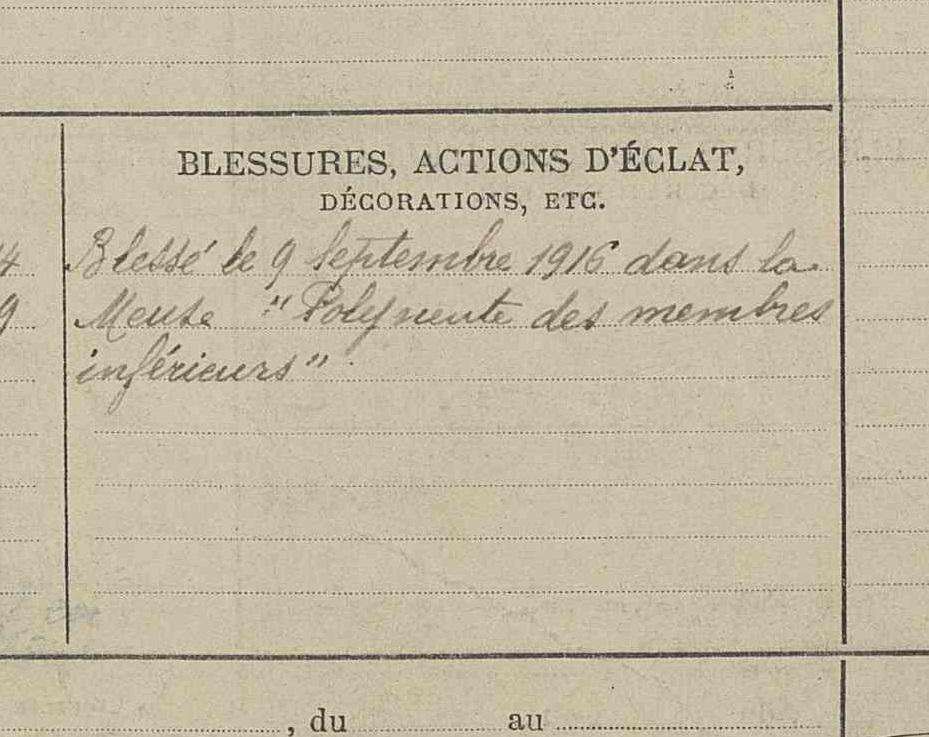 BLESSURES, ACTIONS D'ÉCLAT,
DÉCORATIONS, ETC.
4 Blessé le 9 Septembre 1916 dans la
9 Meuse " des membres
inférieurs"
, du au